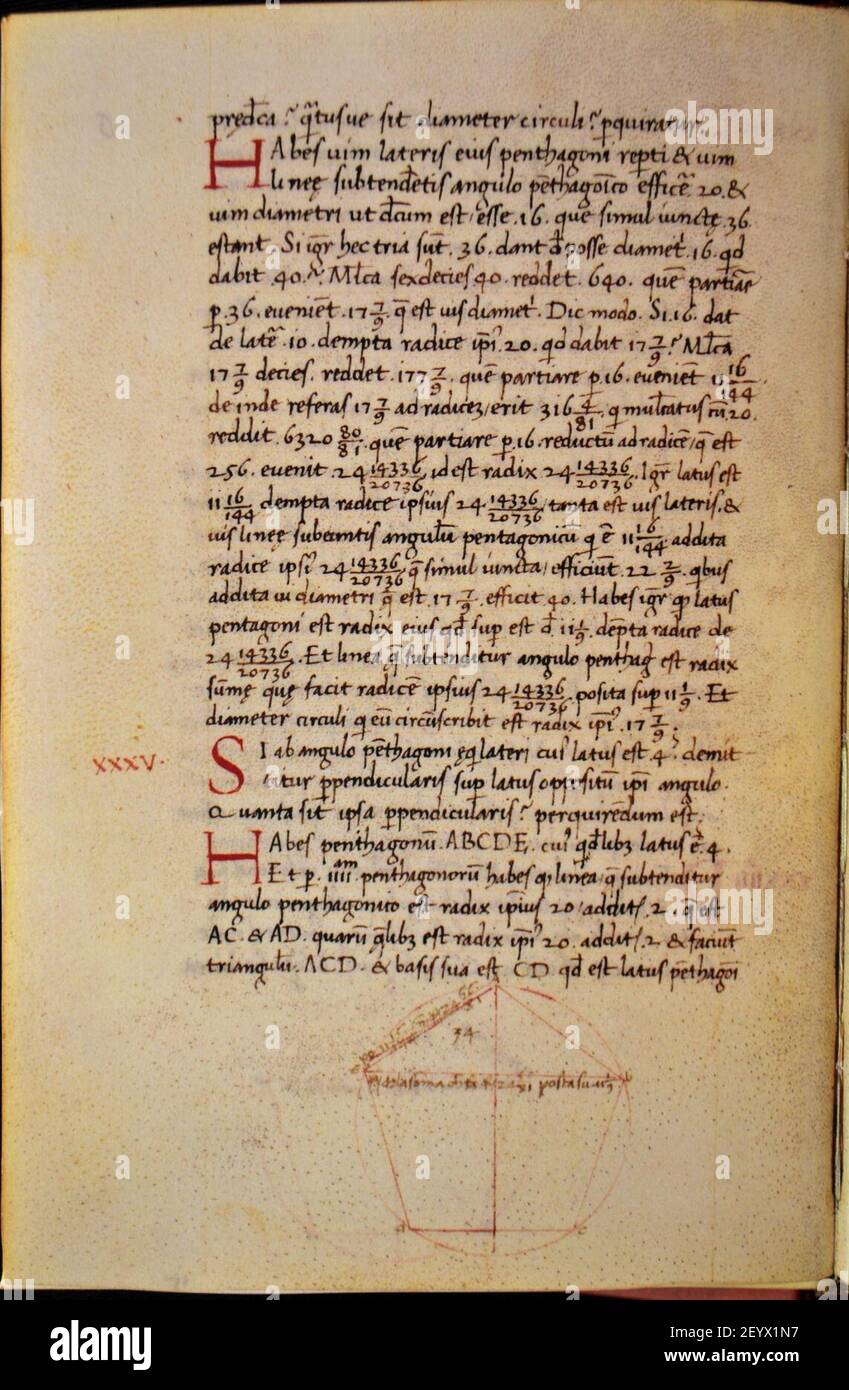 prędca? q̄tusue sit diameter circuli? pquiratur
HAbes uim lateris eius penthagoni repti & uim
lineę subtendētis angulo pēthagoīco efficē 20. &
uim diametri ut dc̄um est, esse .16. que simul iunctę 36.
estant. Si igr̄ hec tria sūt. 36. dant posse diamet' .16. qd
dabit .40.? Ml̄ca sexdecies 40. reddet. 640. quē partiāe
p. 36. eueniēt .17 7/9. q̄ est uis diamet'. Dic modo. Si .16. dat
de latē .10. dempta radice ip̄i' .20. qd dabit 17 7/9? Ml̄ca
17 7/9 decies. reddet. 177 7/9. quē partiare p. 16. eueniēt 11 16/144.
deinde referas 17 7/9 ad radicez, erit 316 4/81. q mulc̄atus cū .20.
reddit. 6320 80/81. quē partiare p. 16. reductū ad radicē, q̄ est
256. euenit. 24 14336/20736. id est radix 24 14336/20736. Igr̄ latus est
11 16/144 dempta radice ipsius 24. 14336/20736, tanta est uis lateris. &
uis lineę subeuntis angulū pentagonicū q ē 11 16/144. addita
radice ipsi' 24 14336/20736. q̄ simul iuncta, efficiūt. 22 2/9. qbus
addita ui diametri q̄ est .17 7/9. efficit 40. Habes igr̄ qp latus
pentagoni est radix eius qd sup est d 11 1/9. dēpta radice de
24 14336/20736. Et linea q̄ subtenditur angulo penthag est radix
sūmę quę facit radicē ipsius 24 14336/20736. posita sup 11 1/9. Et
diameter circuli q eū circūscribit est radix ip̄i'. 17 7/9.
XXXV.
SI ab angulo pēthagoni ęqlateri cui' latus est .4. demit
titur ppendicularis sup latus oppositū ip̄i angulo.
Quanta sit ipsa ppendicularis? perquirēdum est.
HAbes penthagonū. ABCDE. cui' qdlibz latus ē. 4.
Et p. iiiiam penthagonorū habes qp linea, q̄ subtenditur
angulo penthagonico est radix ip̄ius 20, addit'. 2. q̄ est
AC. & AD. quarū q̄libz est radix ip̄i' 20. addit'. 2 & faciūt
triangulū. ACD. & basis sua est CD qd est latus pēthagoī
34
posta su
a
c
alamy
Image ID: 2EYX1N7
www.alamy.com